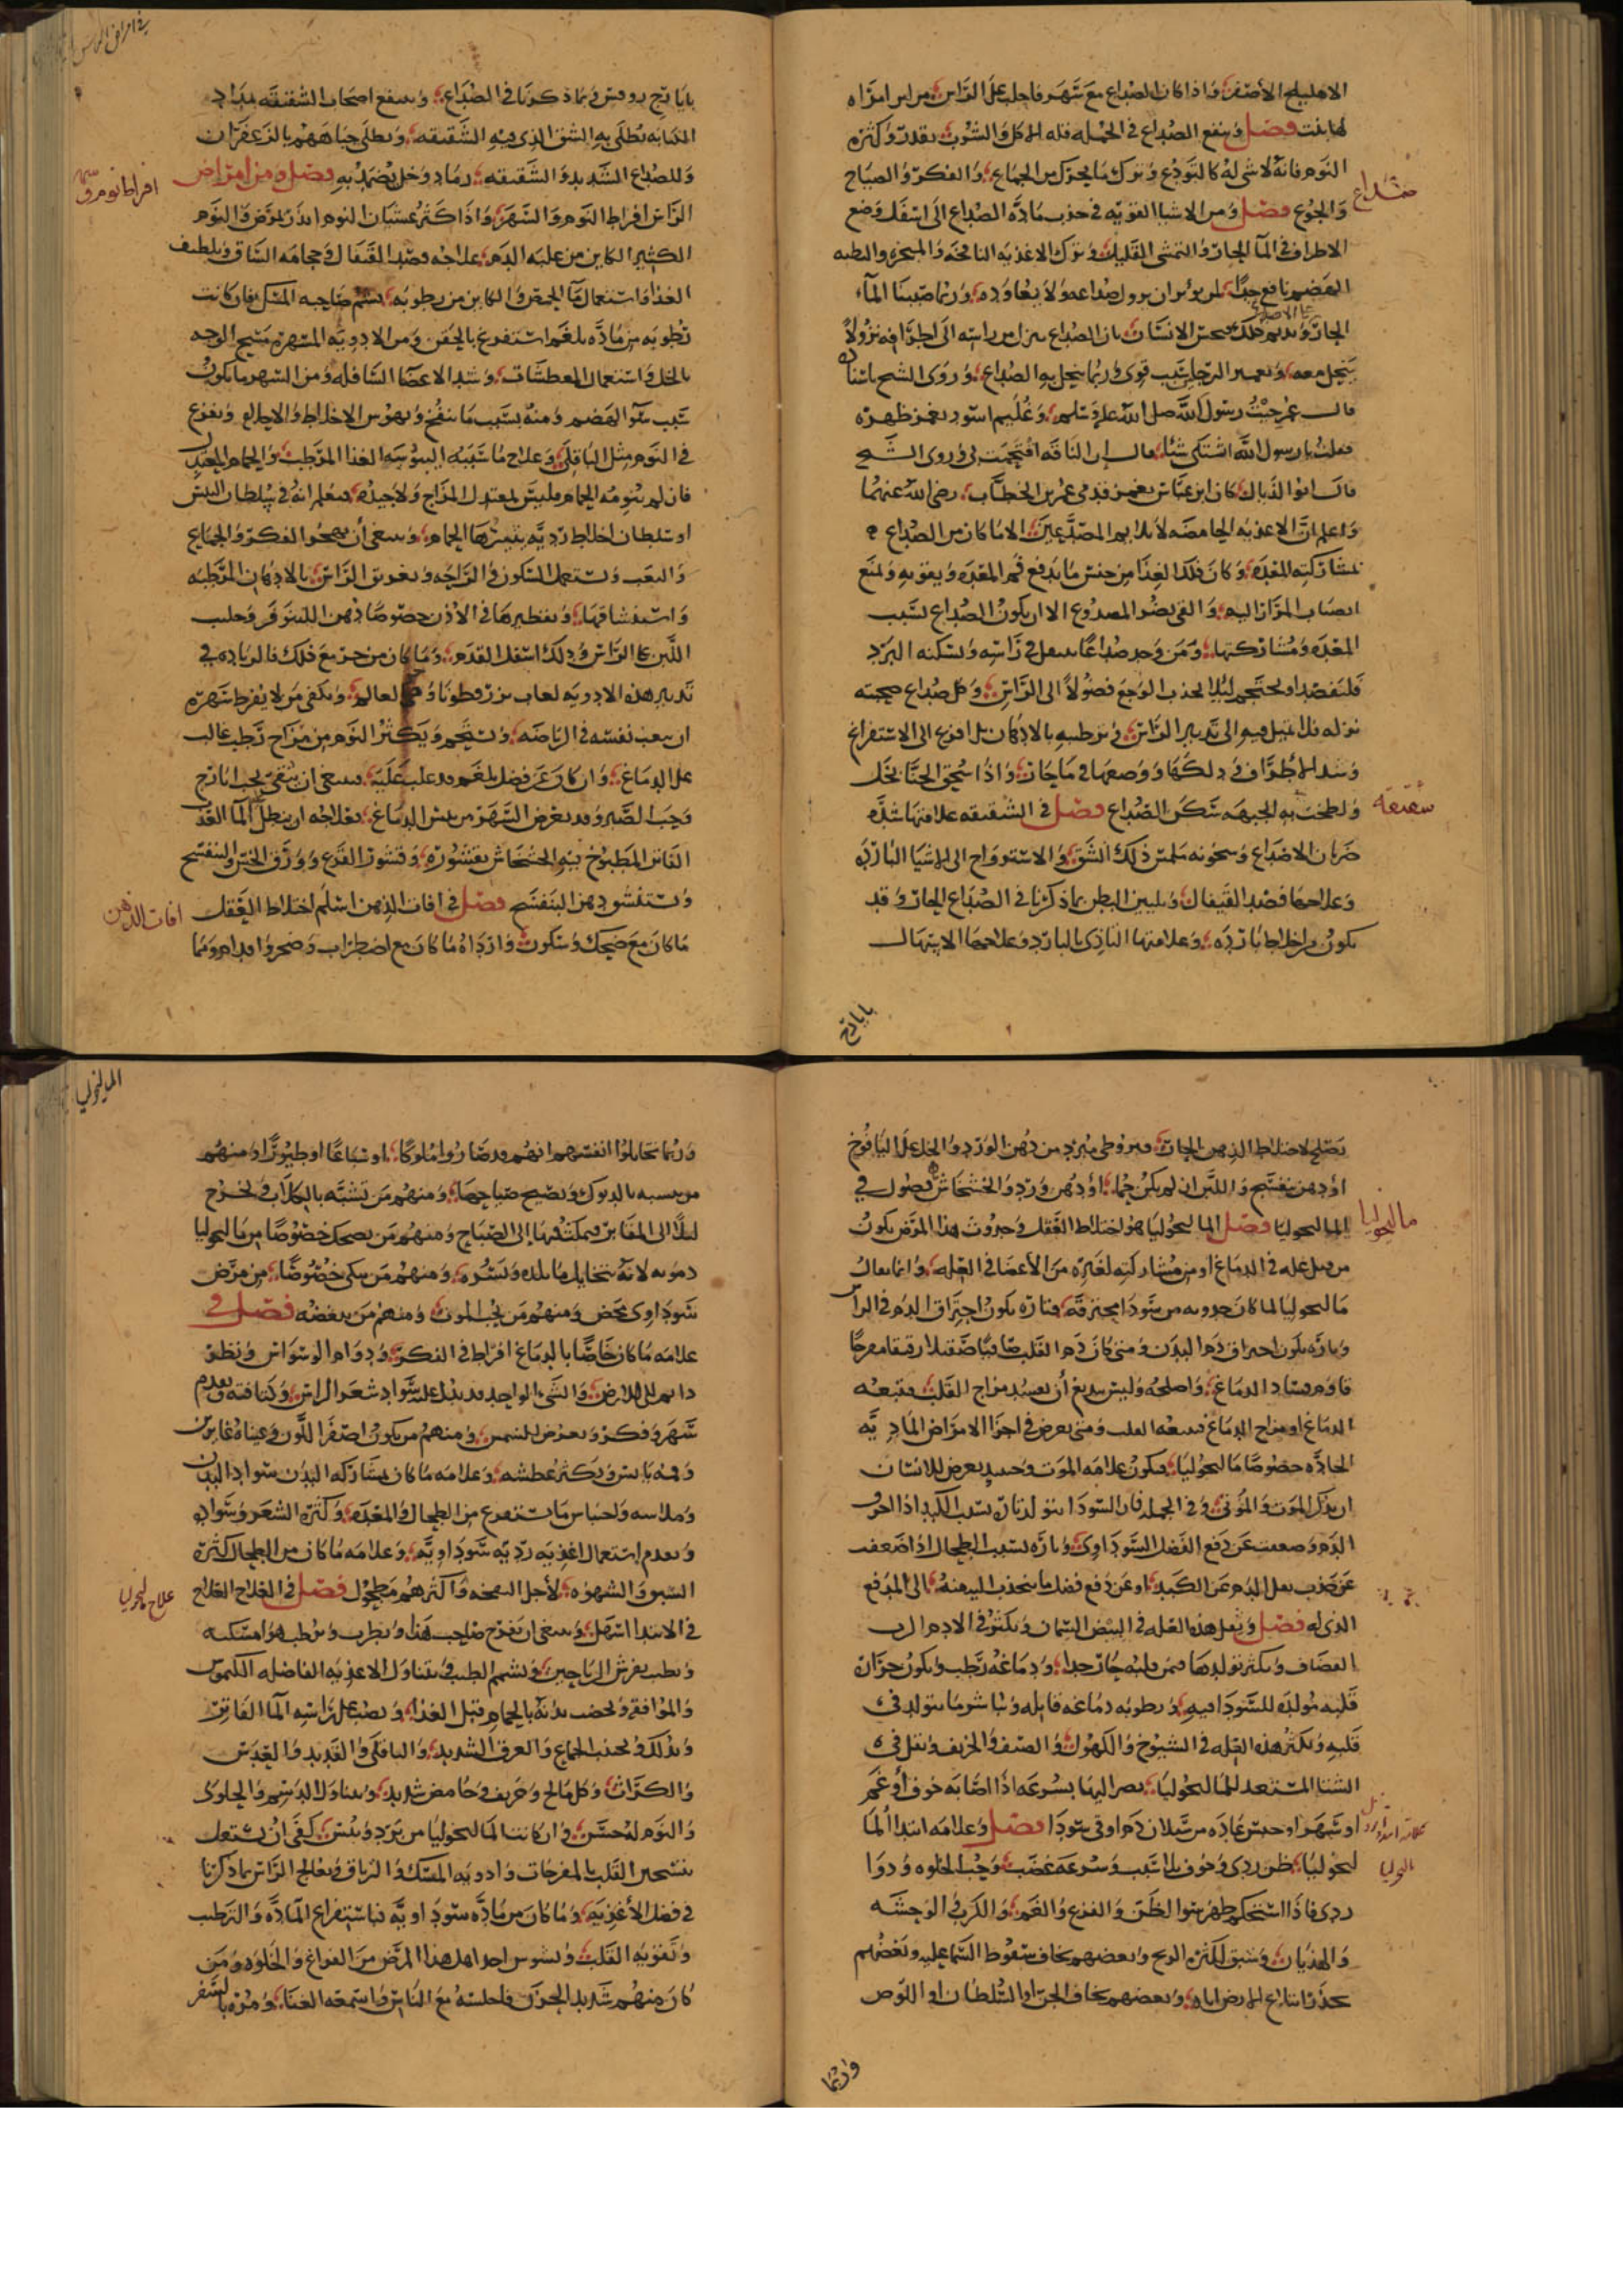 الاهليلج الأصفر وَاذا كان الصُداع مع سَهَر فاجلب على الرَّاس من لبن امرَاه
لها بنت فصل وينفع الصُداع في الجمله قله الاكل وَ الشرب بقدر وَكثره
النوم فانهُ لا شي لهُ كالتودع وَترك ما يحرك من الجماع وَالفكر وَالصياح
صداع
وَالجوع فصل وَمن الاشيا القويه في جذب مادَّه الصُداع الى اسفل وَضع
الاطراف في المآ الحار وَالتمشى القليل وَترك الاغذيه النافخه وَالمبخره والبطيه
الهضم نافع جدًا لمن يؤثر ان يزول صداعه وَلا يعاوده وَربما صببنا المآء
الحار وَنديم ذلك فيحس الانسَان بان الصُداع ينزل من راسه الى اطرافه نزولاً
ينحل معه وَتغميز الرجلين سبب قوي وَربما ينحل به الصداع وَروَى الشيخ باسناده
قال عمر جئتُ رسول الله صلى الله عليه وَسلم وَغُليم اسود يغمز ظهره
فقلتُ يا رسول الله اشتكى شيئا قال ان الناقه اقتحمت بى وَروى الشيخ
قال ابوا الذيال كان ابن عباس يغمز قدمى عمر بن الخطاب رضى الله عنهما
وَاعلم انَّ الاغذيه الحامضه لا تلايم المصدّعين الا ما كان من الصداع
بمشاركته المعده وَكان ذلك الغذا من جنس ما يدفع فم المعده وَيقويه وَيمنع
انصباب المرار اليه وَالقى يضر المصدُوع الا ان يكون الصداع بسبب
المعده وَمشاركتها وَمن وَجد صُداعًا في رَاسه وَيسكنه البرد
فليفصد او يحتجم ليلا يجذب الوجع فضولاً الى الرَّاس وَكل صداع صحبته
نزله فلا تميل فيه الى تدبير الرَّاس وَترطيبه بالادهان بل افزع الى الاستفراغ
وَشد الاطراف وَدلكها وَوضعها في ماء حار وَاذا سحق الحنّا بخل
وَلطخت به الجبهه سَكن الصُداع فصل في الشقيقه علامتها شدَّه
شقيقه
ضربان الاصداغ وَسخونه ملمس ذلك الشق وَالاسترواح الى الاشيا البَاردَه
وَعلاجها فصد القيفال وَتليين البطن بما ذكرنا في الصُداع الحار وَقد
تكون من اخلاط بَاردَه وَعلامتها التَّاذى بالبارد وَعلاجها الاسهال
بايارج
بايارج روفس وَبما ذكرنا في الصُداع وَينفع اصحاب الشقيقه بمداد
الكتابه يُطلى به الشق الذى فيه الشَّقيقه وَيطلى جباههم بالزَّعفران
وَللصداع الشَّديد وَالشَّقيقه رماد وَخل يضمد به فصل وَمن امراض
افراط نوم وسهر
الرَّاس افراط النوم وَالسَّهر وَاذا كثر غشيان النوم انذر بمرض وَالنَّوم
الكثير الكاين من غلبه الدم علاجه فصد القيفال وَحجامه السَّاق وَتلطيف
الغذا وَاستعمال مآ الحمص وَالكاين من رطوبه يشم صاحبه المسك فان كانت
رُطوبه من مادَّه بلغم استفرغ بالحقن وَمن الادويه المسهره مسح الوجه
بالخل وَاستعمال المعطشات وَشد الاعضا السَّافله وَمن السهر ما يكون
سَبب سوّ الهضم وَمنه بسبب ما ينفخ وَيهوس الاخلاط وَالاحلام وَيفزع
في النَّوم مثل الباقلى وَعلاج ما سَببه اليبوسه الغذا المرَطب وَالحمام المعتدل
فان لم ينومه الحمام فليس بمعتدل المزاج وَلا جيد فيعلم انهُ في سلطان اليبس
او سلطان اخلاط رديَّه يثيرها الحمام وَينبغى أن يهجروا الفكر وَالجماع
وَالتعب وَيستعمل السكون وَالرَّاحه وَتغريق الرَّاس بالادهان المرَّطبه
وَاستنشاقها وَتقطيرها في الأذن خصوصًا دهن اللينوفر وَحلب
اللَّبن على الرَّاس وَدلك اسفل القدم وَما كان من حر مع ذلك فالزياده في
تدبير هذه الادويه لعاب بزر قطونا وَ لعاله وَيكفى من لا يفرط سهره
ان يتعب نفسه في الرياضه وَيستحم وَيكثر النوم من مزاج رَطب غالب
على الدماغ وَان كان عن فضل بلغم قد غلب عليه فينبغى ان ينقى بحب ايارج
وَحب الصَّبر وَقد يعرض السَّهر من يبس الدماغ فعلاجه ان ينطل بالمآ العذب
الفاتر المطبوخ فيه الخشخاش بقشوره وَقشور القرع وَورق الخس وَالبنفسج
وَيستنشق دهن البنفسج فصل في افات الذهن اسلم اختلاط العقل
افات الذهن
ما كان مع ضحك وَسكون وَارداهُ ما كان مع اضطراب وَضجر وَاقدام وَربما
في امراض الراس
يصلح لاختلاط الذهن الحار قيروطى مبرد من دهن الورد وَالخل على اليافوخ
أو دهن بنفسج وَاللبن ان لم يكن حُما أو دهن ورد وَالخشخاش فصول في
الماليخوليا فصل الماليخوليا هو اختلاط العَقل وَحدوث هذا المرض يكون
ماليخوليا
من قبل عله في الدماغ او من مشاركته لغيره من الأعضا في العله وَانما يقال
ماليخوليا لما كان حدوثه من سَودا محترقه فتاره يكون احتراق الدم في الرأس
وَتاره يكون احتراق دم البدن وَمتى كان دَم القلب صافيًا صقيلا رقيقا مفرحًا
قاوم فساد الدماغ وَاصلحهُ وَليس ببديع أن يفسد مزاج القلب فيتبعه
الدماغ او مزاج الدماغ فيتبعه القلب وَمتى يعرض في اجزا الامراض الماديه
الحادَّه خصوصًا ماليخوليا فيكون علامه الموت وَحينيذ يعرض للانسان
ان يذكر الموت وَالموتى وَفي الجمله فان السَّودا تتولد تارةً بسبب الكبد اذا احرق
الدم وَضعفت عن دَفع الفضل السَّودَاوى وَتارَه بسبب الطحال اذا ضعف
عن جذب ثفل الدم عن الكبد او عن دَفع فضل ما ينجذب اليه منهُ الى المدفع
الذى له فصل وَتقل هذه العله في البيض السمان وَتكثر في الادم الزب
القضاف وَيكثر تولدها فيمن قلبه حار جدا وَدماغه رَطب وَيكون حرَارَة
قلبه مُولدَه للسَّودا فيه وَرطوبه دماغه قابله وَتباشر ما يتولد في
قلبه وَتكثر هذه العله في الشيوخ وَالكهول وَالصيف وَالخريف وَتقل في
الشتا المستعد للماليخوليا يصير اليها بسرعه اذا اصابه خوف أو غم
او سَهر او حبس عاده من سيلان دم او قى سودا فصل وَعلامه ابتدا الما
ليخوليا ظن ردى وَخوف بلا سبب وَسرعه غضب وَحب الخلوه وَدوا
ردى فاذا استحكم ظهر سوا الظَّن وَالفزع وَالغم وَالكرب وَالوحشه
وَالهذيان وَشبق لكثره الريح وَبعضهم يخاف سقوط السَّما عليه وَبعضهم
يحذر ابتلاع الارض اياه وَبعضهم يخاف الجن او السُّلطان او اللّصوص
وربما
الماليخوليا
وَربما تخايلوا انفسهم انهُم قد صاروا مُلوكًا او سباعًا او طيورًا وَمنهم
من يتشبه بالديوك وَيصيح صياحها وَمنهم من تشبَّه بالكلاب فيخرج
ليلاً الى المقابر فيمكث فيها الى الصَّباح وَمنهم من يضحك خصُوصًا من ماليخوليا
دمويه لانّه يتخايل ما يلذه وَيسره وَمنهم من يبكى خصوصًا من مرض
سَودَاوى محض وَمنهم من يحب الموت وَمنهم من يبغضه فصل في
علامه ما كان خَاصًا بالدماغ افراط في الفكر وَدوام الوسواس وَنظر
دايم الى الارض وَالى الشى الواحد قد يدل عليه سَواد شعر الراس وَكثافته وتقدم
سَهر وَفكر وَتعرض للشمس وَمنهم من يكون اصفر اللَّون وَعيناهُ غايرتان
وَفمه يابس وَيكثر عطشه وَعلامه ما كان بمشاركه البدن سواد البدن
وَهلاسه وَاحتباس ما يستفرغ من الطحال وَالمعده وَكثره الشعر وَسواده
وَتقدم استعمال اغذيه رديَّه سَودَاويَّه وَعلامه ما كان من الطحال كثره
الشبق وَالشهوه لأجل النفخه وَأكثرهم مطحول فصل في العلاج العلاج
علاج ماليخوليا
في الابتدا اسهل وَينبغى ان يفرح صاحب هذا وَيطرب وَيرطب هوا مسكنه
وَيطيب بفرش الرياحين وَيشمم الطيب وَيتناول الاغذيه الفاضله الكيموس
وَالموافقه وَيخصب بدنهُ بالحمام قبل الغذا وَيصب على رَاسه المآ الفاتر
وَيدلك وَيجتنب الجماع وَالعرق الشديد وَالباقلى وَالقديد وَالعدس
وَالكرَّاث وَكل مالح وَحريف وَحامض شديد وَيتناول الدسم وَالحلوى
وَالنوم لهُ حسن وَان كانت الماليخوليا من برد وَيبس كفى ان يشتغل
بتسخين القلب بالمفرحات وَادويه المسك وَالترياق وَيعالج الرَّاس بما ذكرنا
في فصل الأغذيه وَما كان من مادَّه سَودَاويَّه فباستفراغ المادَّه وَالترطيب
وَتقويه القلب وَلسوس احد اهل هذا المرض من الفراغ وَالخلوه وَمن
كان منهم شديد الحزن فاجلسه مع الناس وَاسمعه الغنا وَمره بالسَّفر